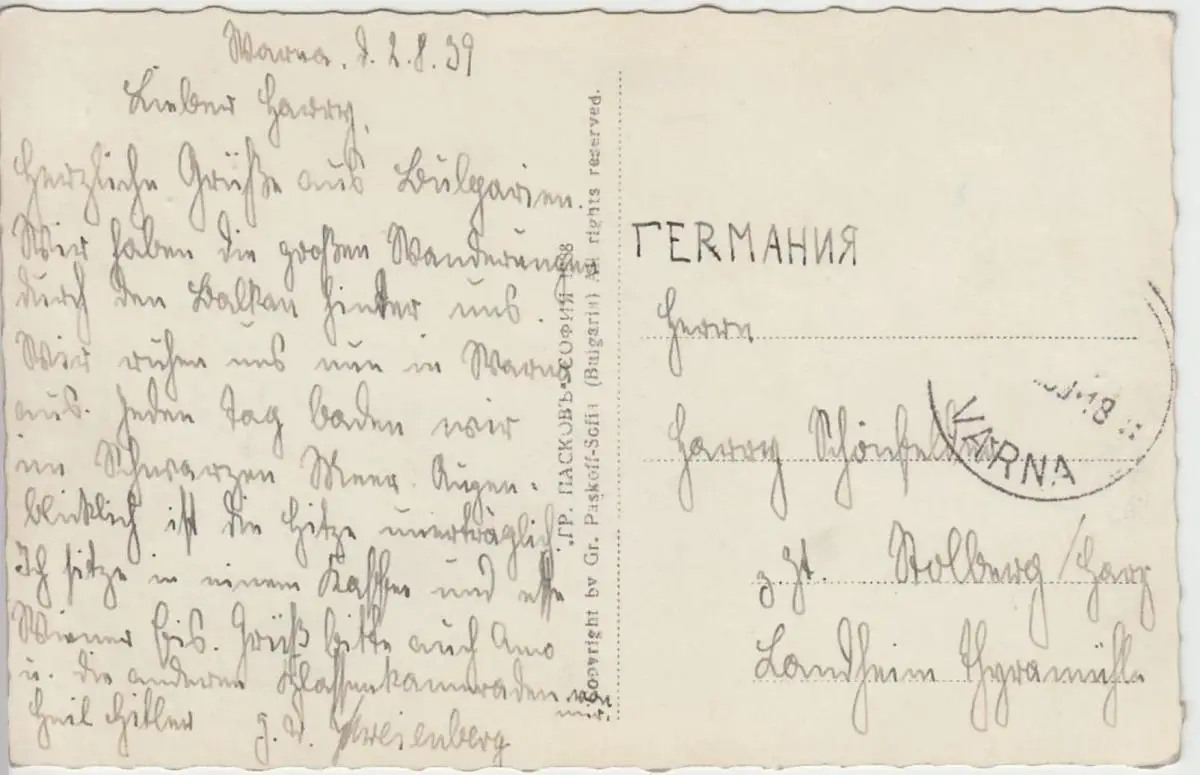 Warna, d. 2.8.39
Lieber Harry,
Herzliche Grüße aus Bulgarien.
Wir haben die großen Wanderungen
durch den Balkan hinter uns.
Wir ruhen uns nun in Warna
aus. Jeden Tag baden wir
im Schwarzen Meer. Augen-
blicklich ist die Hitze unerträglich.
Ich sitze in einem Kaffee und esse
Wiener Eis. Grüß bitte auch
u. die anderen Klassenkameraden von
mir.
Heil Hitler
„ГР. ПАСКОВЪ"-СОФИЯ 1938
Copyright by Gr. Paskoff-Sofia (Bulgaria) All rights reserved.
ГERMАНИЯ
Herrn
Harry Schönfelder
z Zt. Stolberg/Harz
Landheim Thyramühle
VARNA